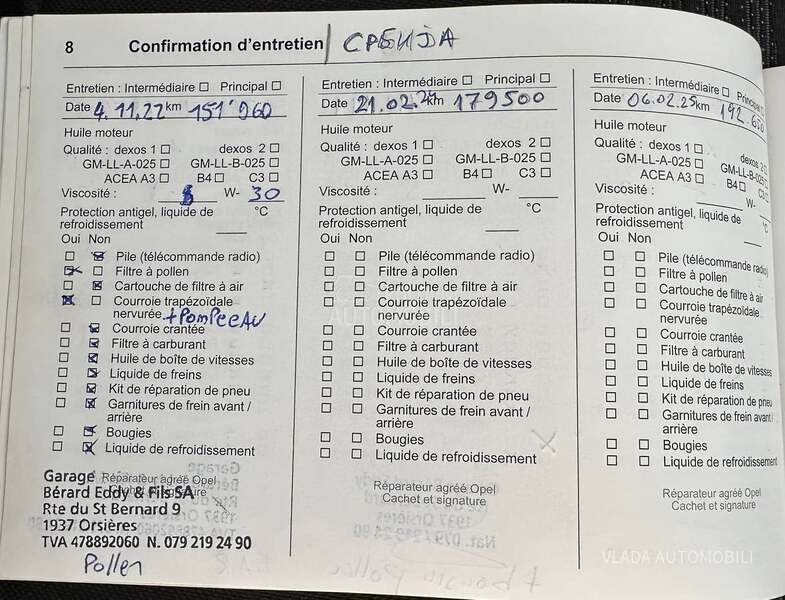 8 Confirmation d'entretien
Entretien : Intermédiaire Principal
Date 4.11.22 km 151'960
Huile moteur
Qualité : dexos 1 dexos 2
GM-LL-A-025 GM-LL-B-025
ACEA A3 B4 C3
Viscosité : W- 30
Protection antigel, liquide de °C
refroidissement
Oui Non
Pile (télécommande radio)
Filtre à pollen
Cartouche de filtre à air
Courroie trapézoïdale
nervurée +PomPeeAu
Courroie crantée
Filtre à carburant
Huile de boîte de vitesses
Liquide de freins
Kit de réparation de pneu
Garnitures de frein avant /
arrière
Bougies
Liquide de refroidissement
Réparateur agréé Opel
Cachet et signature
Garage
Bérard Eddy & Fils SA
Rte du St Bernard 9
1937 Orsières
TVA 478892060 N. 079 219 24 90
Pollen
Entretien : Intermédiaire Principal
Date 21.02.24 km 179500
Huile moteur
Qualité : dexos 1 dexos 2
GM-LL-A-025 GM-LL-B-025
ACEA A3 B4 C3
Viscosité : W-
Protection antigel, liquide de °C
refroidissement
Oui Non
Pile (télécommande radio)
Filtre à pollen
Cartouche de filtre à air
Courroie trapézoïdale
nervurée
Courroie crantée
Filtre à carburant
Huile de boîte de vitesses
Liquide de freins
Kit de réparation de pneu
Garnitures de frein avant /
arrière
Bougies
Liquide de refroidissement
Réparateur agréé Opel
Cachet et signature
Entretien : Intermédiaire Principal
Date 06.02.25 km
Huile moteur
Qualité : dexos 1 dexos 2
GM-LL-A-025 GM-LL-B-025
ACEA A3 B4 C3
Viscosité : W-
Protection antigel, liquide de
refroidissement
Oui Non
Pile (télécommande radio)
Filtre à pollen
Cartouche de filtre à air
Courroie trapézoïdale
nervurée
Courroie crantée
Filtre à carburant
Huile de boîte de vitesses
Liquide de freins
Kit de réparation de pneu
Garnitures de frein avant /
arrière
Bougies
Liquide de refroidissement
Réparateur agréé Opel
Cachet et signature
VLADA AUTOMOBILI